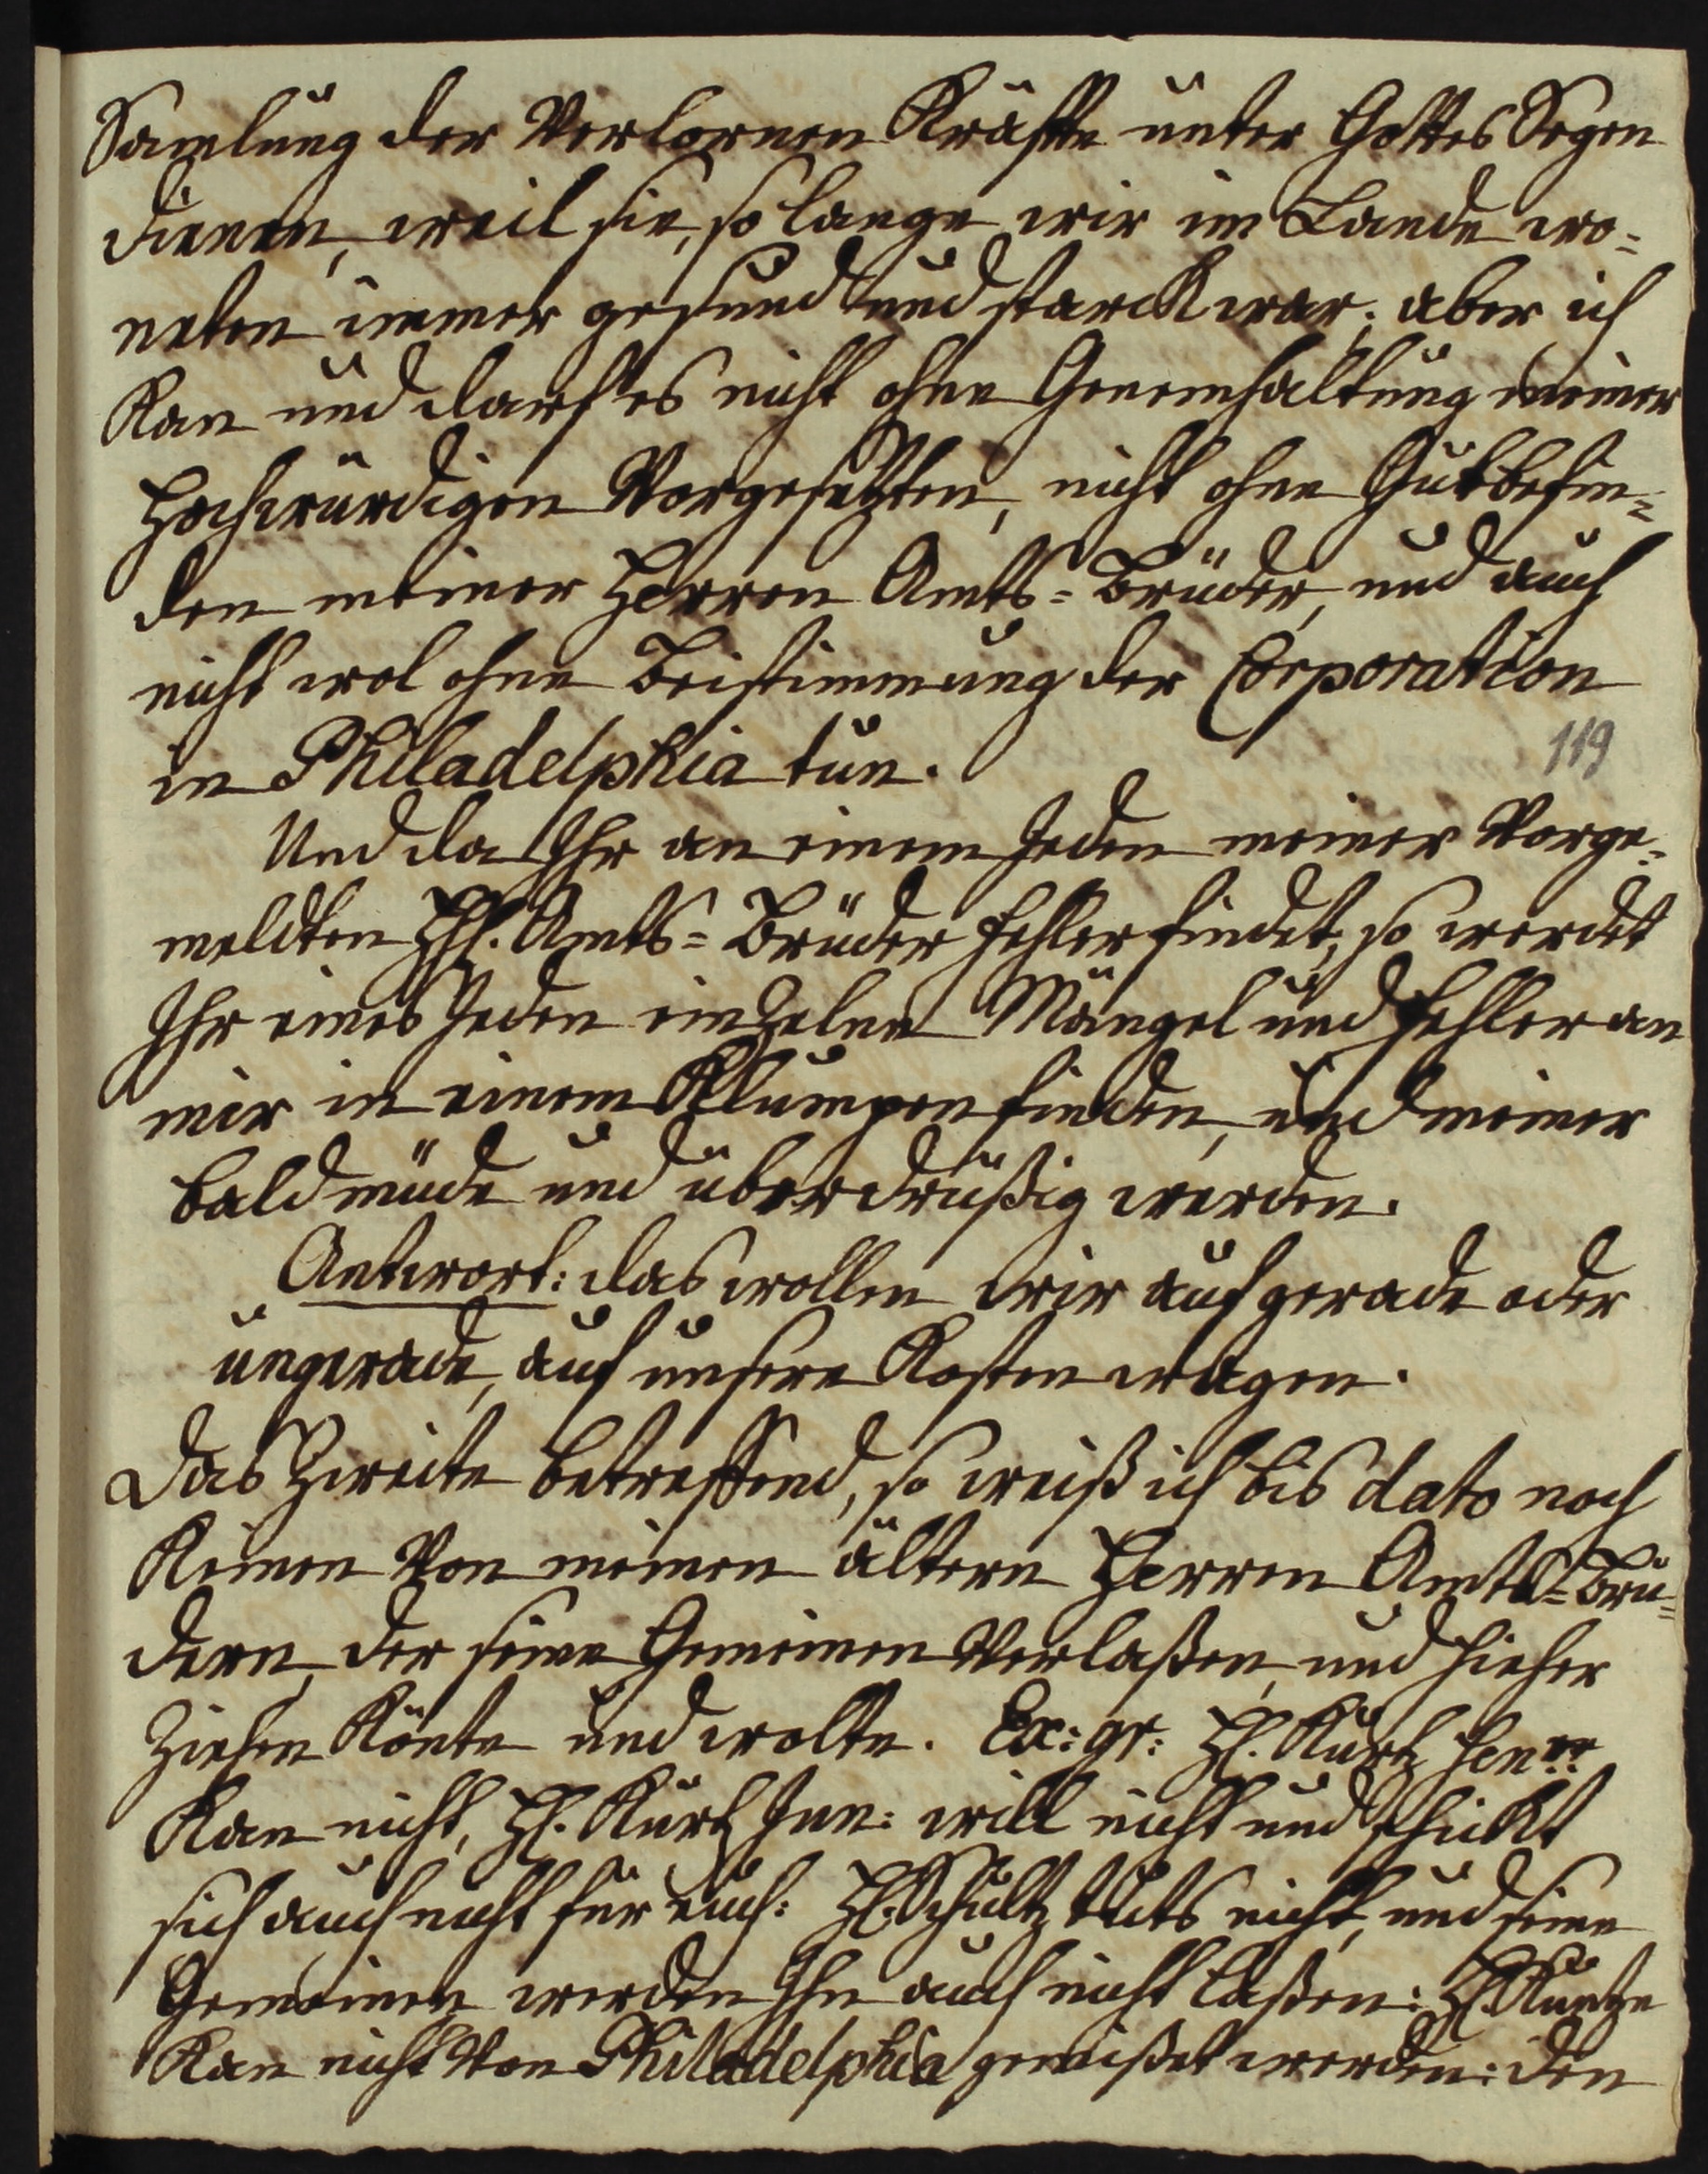 Samlung der Verlornen Kräfte unter Gottes Segen
dienen, weil sie, so lange wir im Lande wo-
neten immer gesund und starck war; aber ich
Kan und darf es nicht ohne Genemhaltung meiner
Hochwürdigen Vorgesetzten, nicht ohne Gutbefin-
den meiner Herren Amts-Brüder, und auch
nicht wol ohne Beistimmung der Corporation
in Philadelphia tun.
119
Und da Ihr an einem Jeden meiner Vorge-
meldten HH. Amts-Brüder Fehler findet, so werdet
Ihr eines Jeden einzelne Mängel und Fehler an
mir in einem Klumpen finden, und meiner
bald müde und überdrüßig werden.
Antwort: das wollen wir auf gerade oder
ungerade, auf unsere Kosten wagen.
Das Zweite betreffend, so weiß ich bis dato noch
Keinen Von meinen ältern Herren Amts-Brü-
dern, der seine Gemeinen Verlaßen, und hieher
Ziehen Könte und wolte. Ex: gr: H. Kurtz Senr.
Kan nicht, H. Kurtz Jun: will nicht und schickt
sich auch nicht für euch: H. Schultz tuts nicht, und seine
Gemeinen werden Ihn auch nicht laßen: H. Kuntze
Kan nicht Von Philadelphia gemißet werden: den